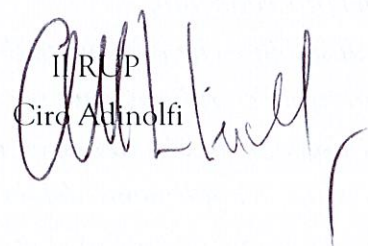 Il RUP
Ciro Adinolfi